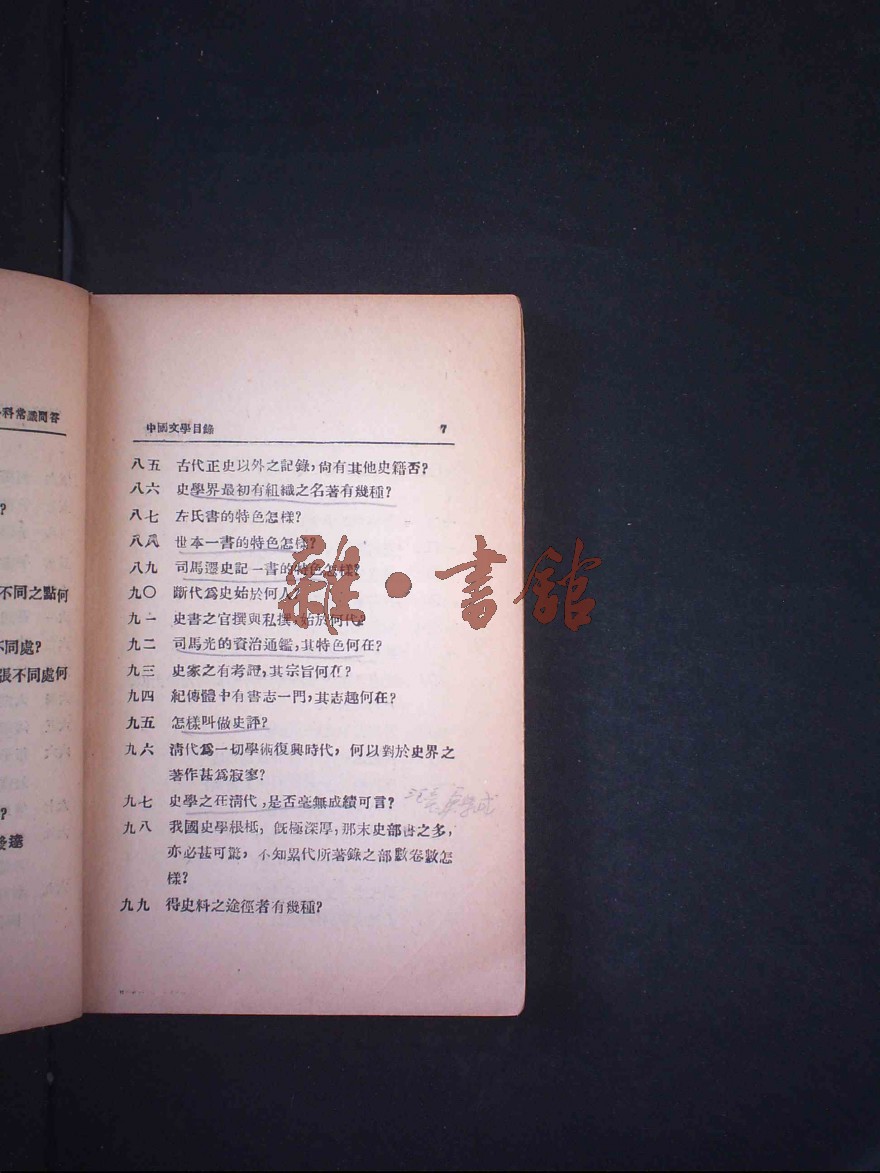 科常識問答
?
不同之點何
不同處?
張不同處何
?
中國文學目錄 7
八五 古代正史以外之記錄,尙有其他史籍否?
八六 史學界最初有組織之名著有幾種?
八七 左氏書的特色怎樣?
八八 世本一書的特色怎樣?
八九 司馬遷史記一書的特色怎樣?
九〇 斷代爲史始於何人?
九一 史書之官撰與私撰,始於何代?
九二 司馬光的資治通鑑,其特色何在?
九三 史家之有考證,其宗旨何在?
九四 紀傳體中有書志一門,其志趣何在?
九五 怎樣叫做史評?
九六 清代爲一切學術復興時代, 何以對於史界之
著作甚爲寂寥?
九七 史學之在清代,是否毫無成績可言?
九八 我國史學根柢, 旣極深厚,那末史部書之多,
亦必甚可驚, 不知累代所著錄之部數卷數怎
樣?
九九 得史料之途徑者有幾種?
雜·書館